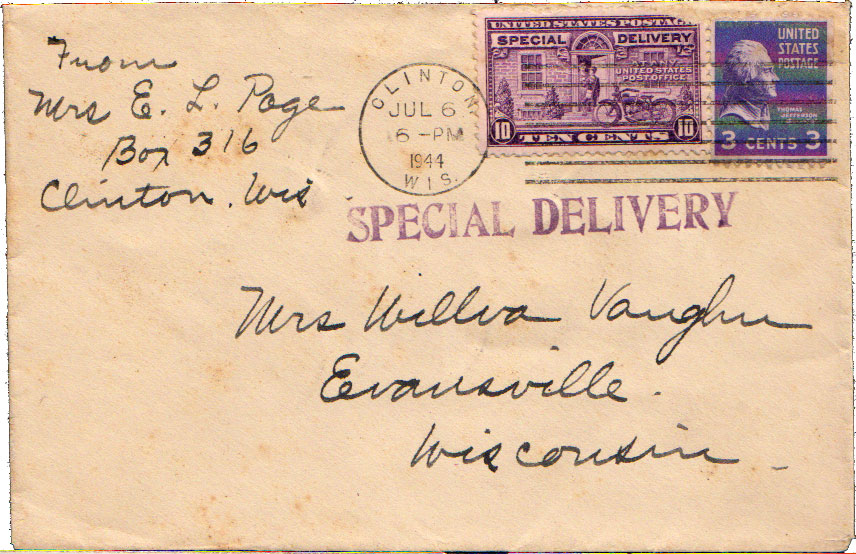 From
Mrs E. L. Page
Box 316
Clinton, Wis
CLINTON
JUL 6
6-PM
1944
WIS.
UNITED STATES POSTAGE
SPECIAL DELIVERY
AT ANY
UNITED STATES
POST OFFICE
10 TEN CENTS 10
UNITED
STATES
POSTAGE
THOMAS
JEFFERSON
3 CENTS 3
SPECIAL DELIVERY
Mrs Willva Vaughn
Evansville.
Wisconsin